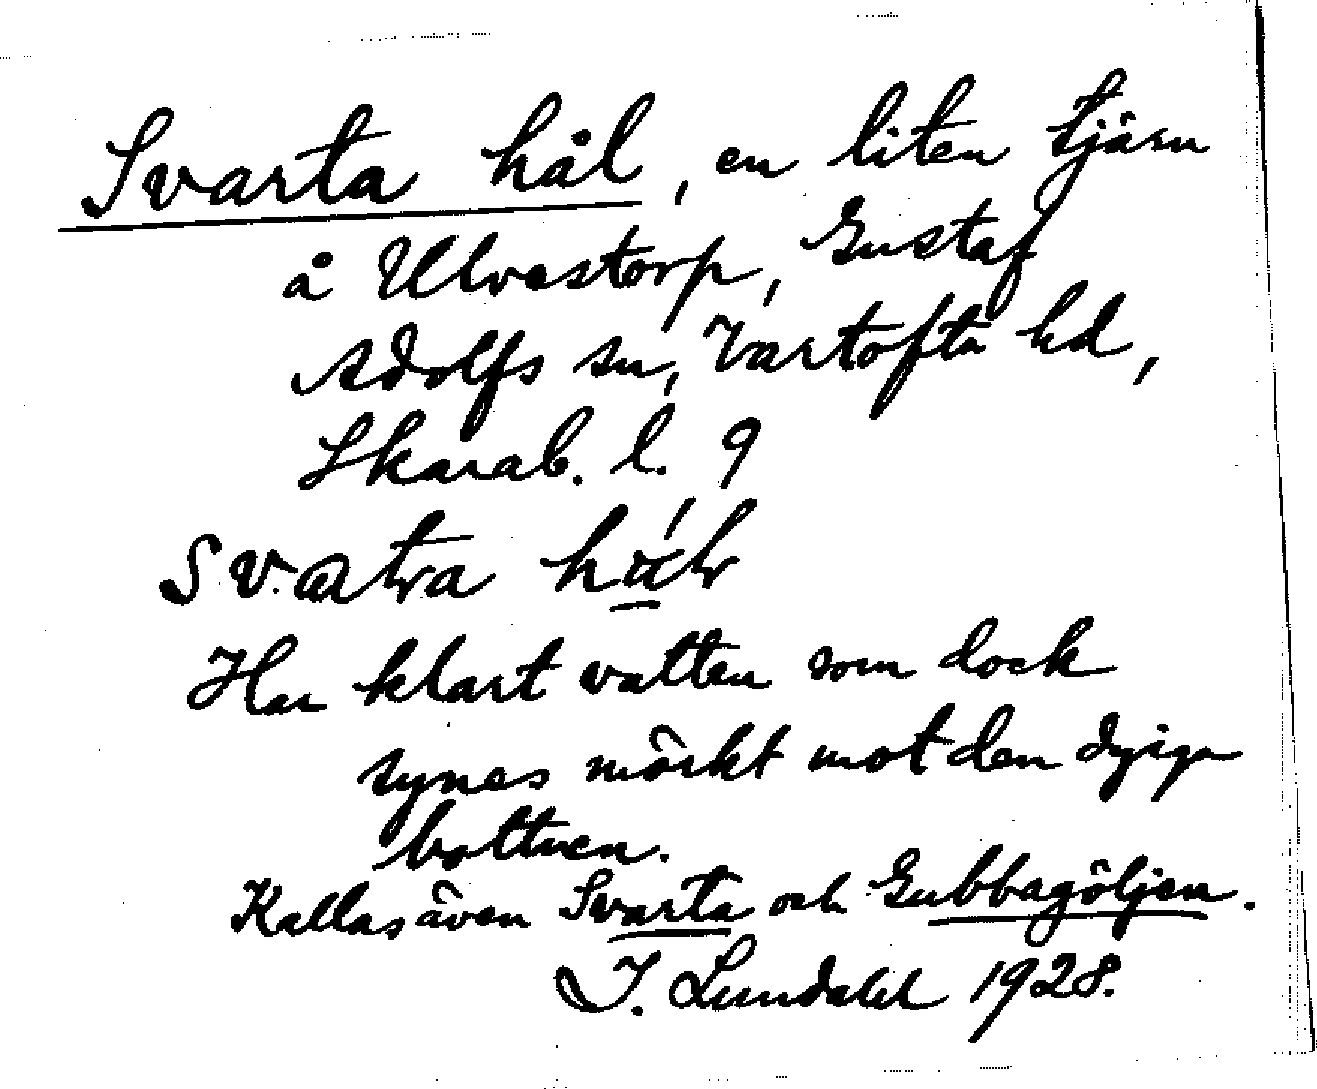 Svarta hål, en liten tjärn
å Ulvestorp, Gustaf
Adolfs sn, Vartofta hd,
Skarab. l. 9
Har klart vatten som dock
synes mörkt mot den dyiga
bottnen.
Kallas även Svarta och Gubbagöljen.
J. Lundahl 1928.